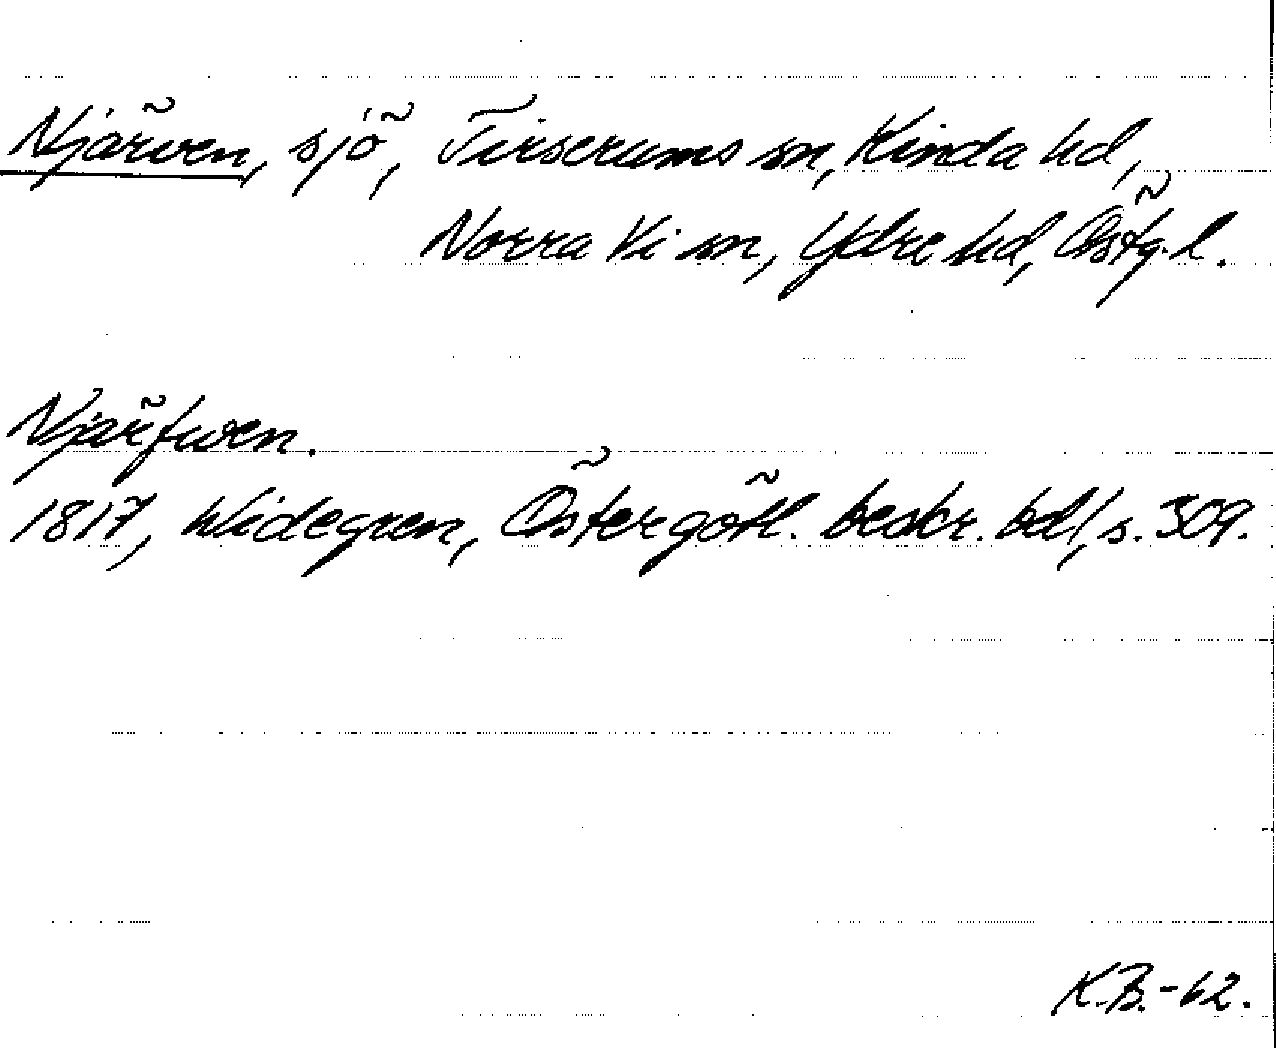 Njärven, sjö, Tirserums sn, Kinda hd,
Norra Vi sn, Ydre hd, Östg. l.
Njärfwen.
1817, Widegren, Östergötl. beskr. bd 1, s. 309.
K.B.-62.